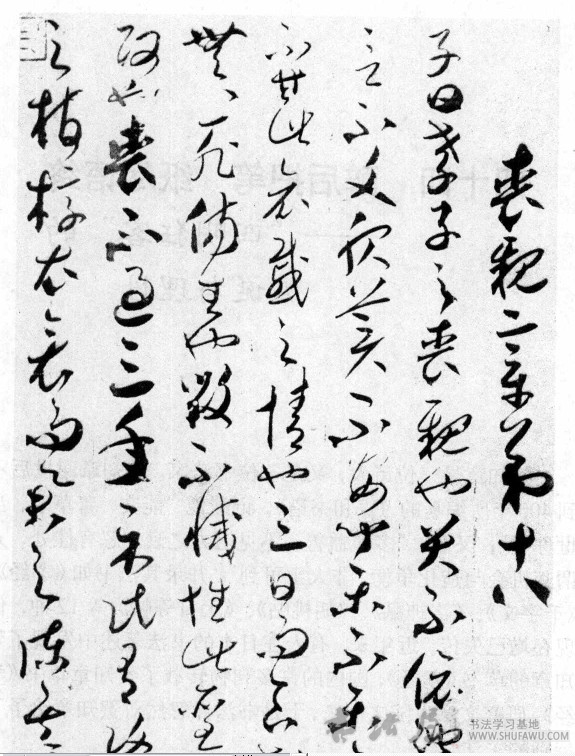 喪親章第十八
子曰孝子之喪親也哭不依
言不文服美不安聞樂不樂
不甘此哀戚之情也三日而食
無以死傷生也毀不滅性此聖
政也喪不過三年示民有終
之棺槨衣衾而舉之陳其
书法学习基地
WWW.SHUFAWU.COM